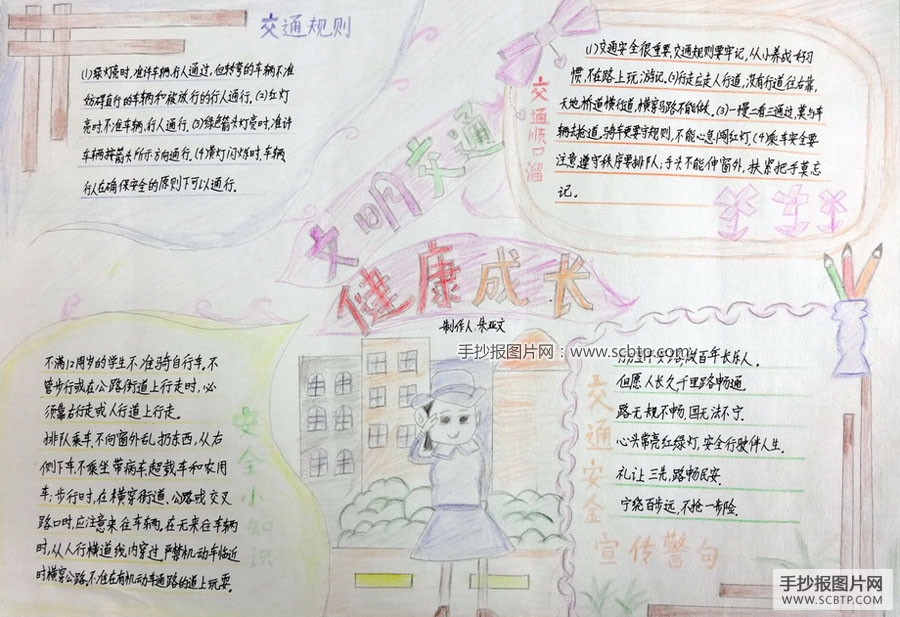 交通规则
(1)绿灯亮时,准许车辆,行人通过,但转弯的车辆不准
妨碍直行的车辆和被放行的行人通行.(2)红灯
亮时,不准车辆,行人通行.(3)绿色箭头灯亮时,准许
车辆按箭头所示方向通行.(4)黄灯闪烁时,车辆,
行人在确保安全的原则下可以通行.
交通顺口溜
(1)交通安全很重要,交通规则要牢记,从小养成好习
惯,不在路上玩游记.(2)行走应走人行道,没有行道往右靠,
天地桥道横行道,横穿马路不能做.(3)一慢二看三通过,莫与车
辆去抢道.骑车更要守规则,不能心急闯红灯.(4)乘车安全要
注意,遵守秩序要排队;手头不能伸窗外,扶紧把手莫忘
记.
文明交通
健康成长
制作人.朱亚文
手抄报图片网:www.scbtp.com
安全小知识
不满12周岁的学生不准骑自行车.不
管步行或在公路街道上行走时,必
须靠右行走或人行道上行走.
排队乘车,不向窗外乱扔东西,从右
侧下车不乘坐带病车,超载车和农用
车;步行时,在横穿街道、公路或交叉
路口时,应注意来往车辆,在无来往车辆
时,从人行横道线内穿过,严禁机动车临近
时横穿公路.不准在有机动车通路的道上玩耍.
交通安全
宣传警句
百年长乐人.
但愿人长久,千里路畅通.
路无规不畅,国无法不宁.
心头常亮红绿灯,安全行驶伴人生.
礼让三先,路畅民安.
宁绕百步远,不抢一步险.
手抄报图片网
WWW.SCBTP.COM